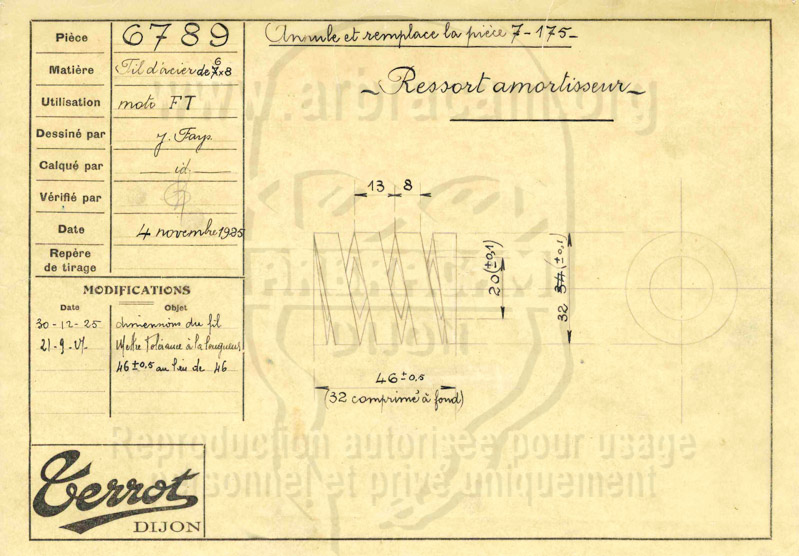 Pièce 6789
Annule et remplace la pièce 7-175-
Matière Fil d'acier de 7x8
6
Ressort amortisseur
Utilisation moto FT
Dessiné par J. Fays
Calqué par id
Vérifié par
Date 4 novembre 1925
Repère
de tirage
MODIFICATIONS
Date Objet
30-12-25 dimensions du fil
21-9- Mettre tolérance à la longueur
46±0,5 au lieu de 46
13 8
20(±0,1)
32 34 (±0,1)
46±0,5
(32 comprimé à fond)
Terrot
DIJON
www.arbracam.org
DIJON
Reproduction autorisée pour usage
personnel et privé uniquement